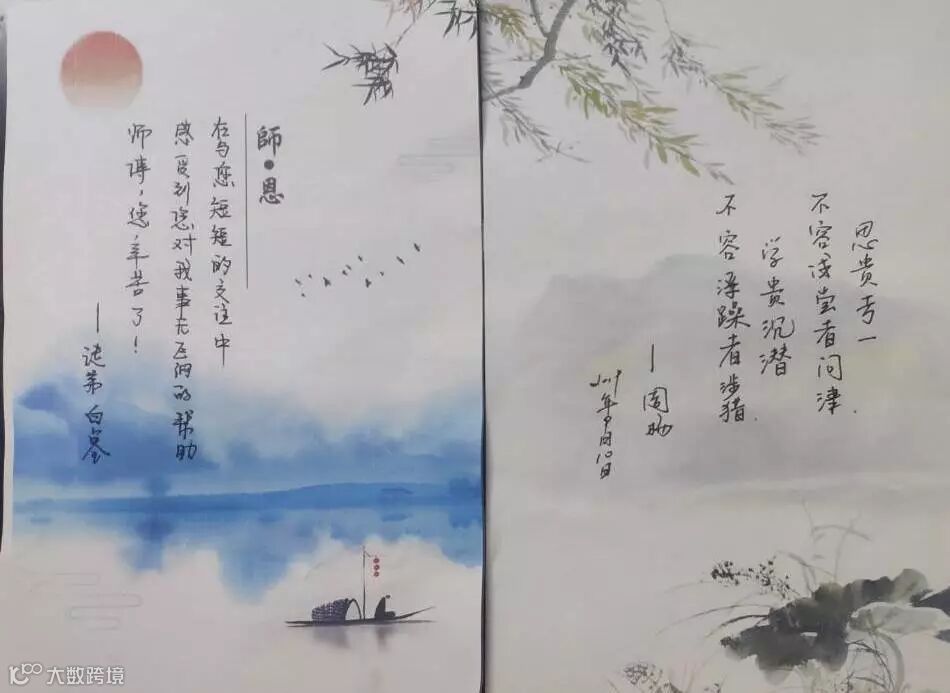 師•恩
在与您短短的交往中
感受到您对我事无巨细的帮助
师傅，您辛苦了！
—徒弟 白
思贵专一
不容浅尝者问津.
学贵沉潜
不容浮躁者涉猎.
—周
2019年9月10日
大数跨境